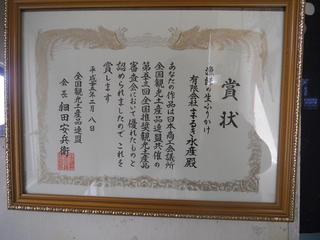 賞状
漁師の生ふりかけ
有限会社まるき水産殿
あなたの作品は日本商工会議所
全国観光土産品連盟共催の
第五十一回全国推奨観光土産品
審査会において優れたものと
認められましたのでこれを
賞します
平成二十三年二月八日
全国観光土産品連盟
会長 細田安兵衛